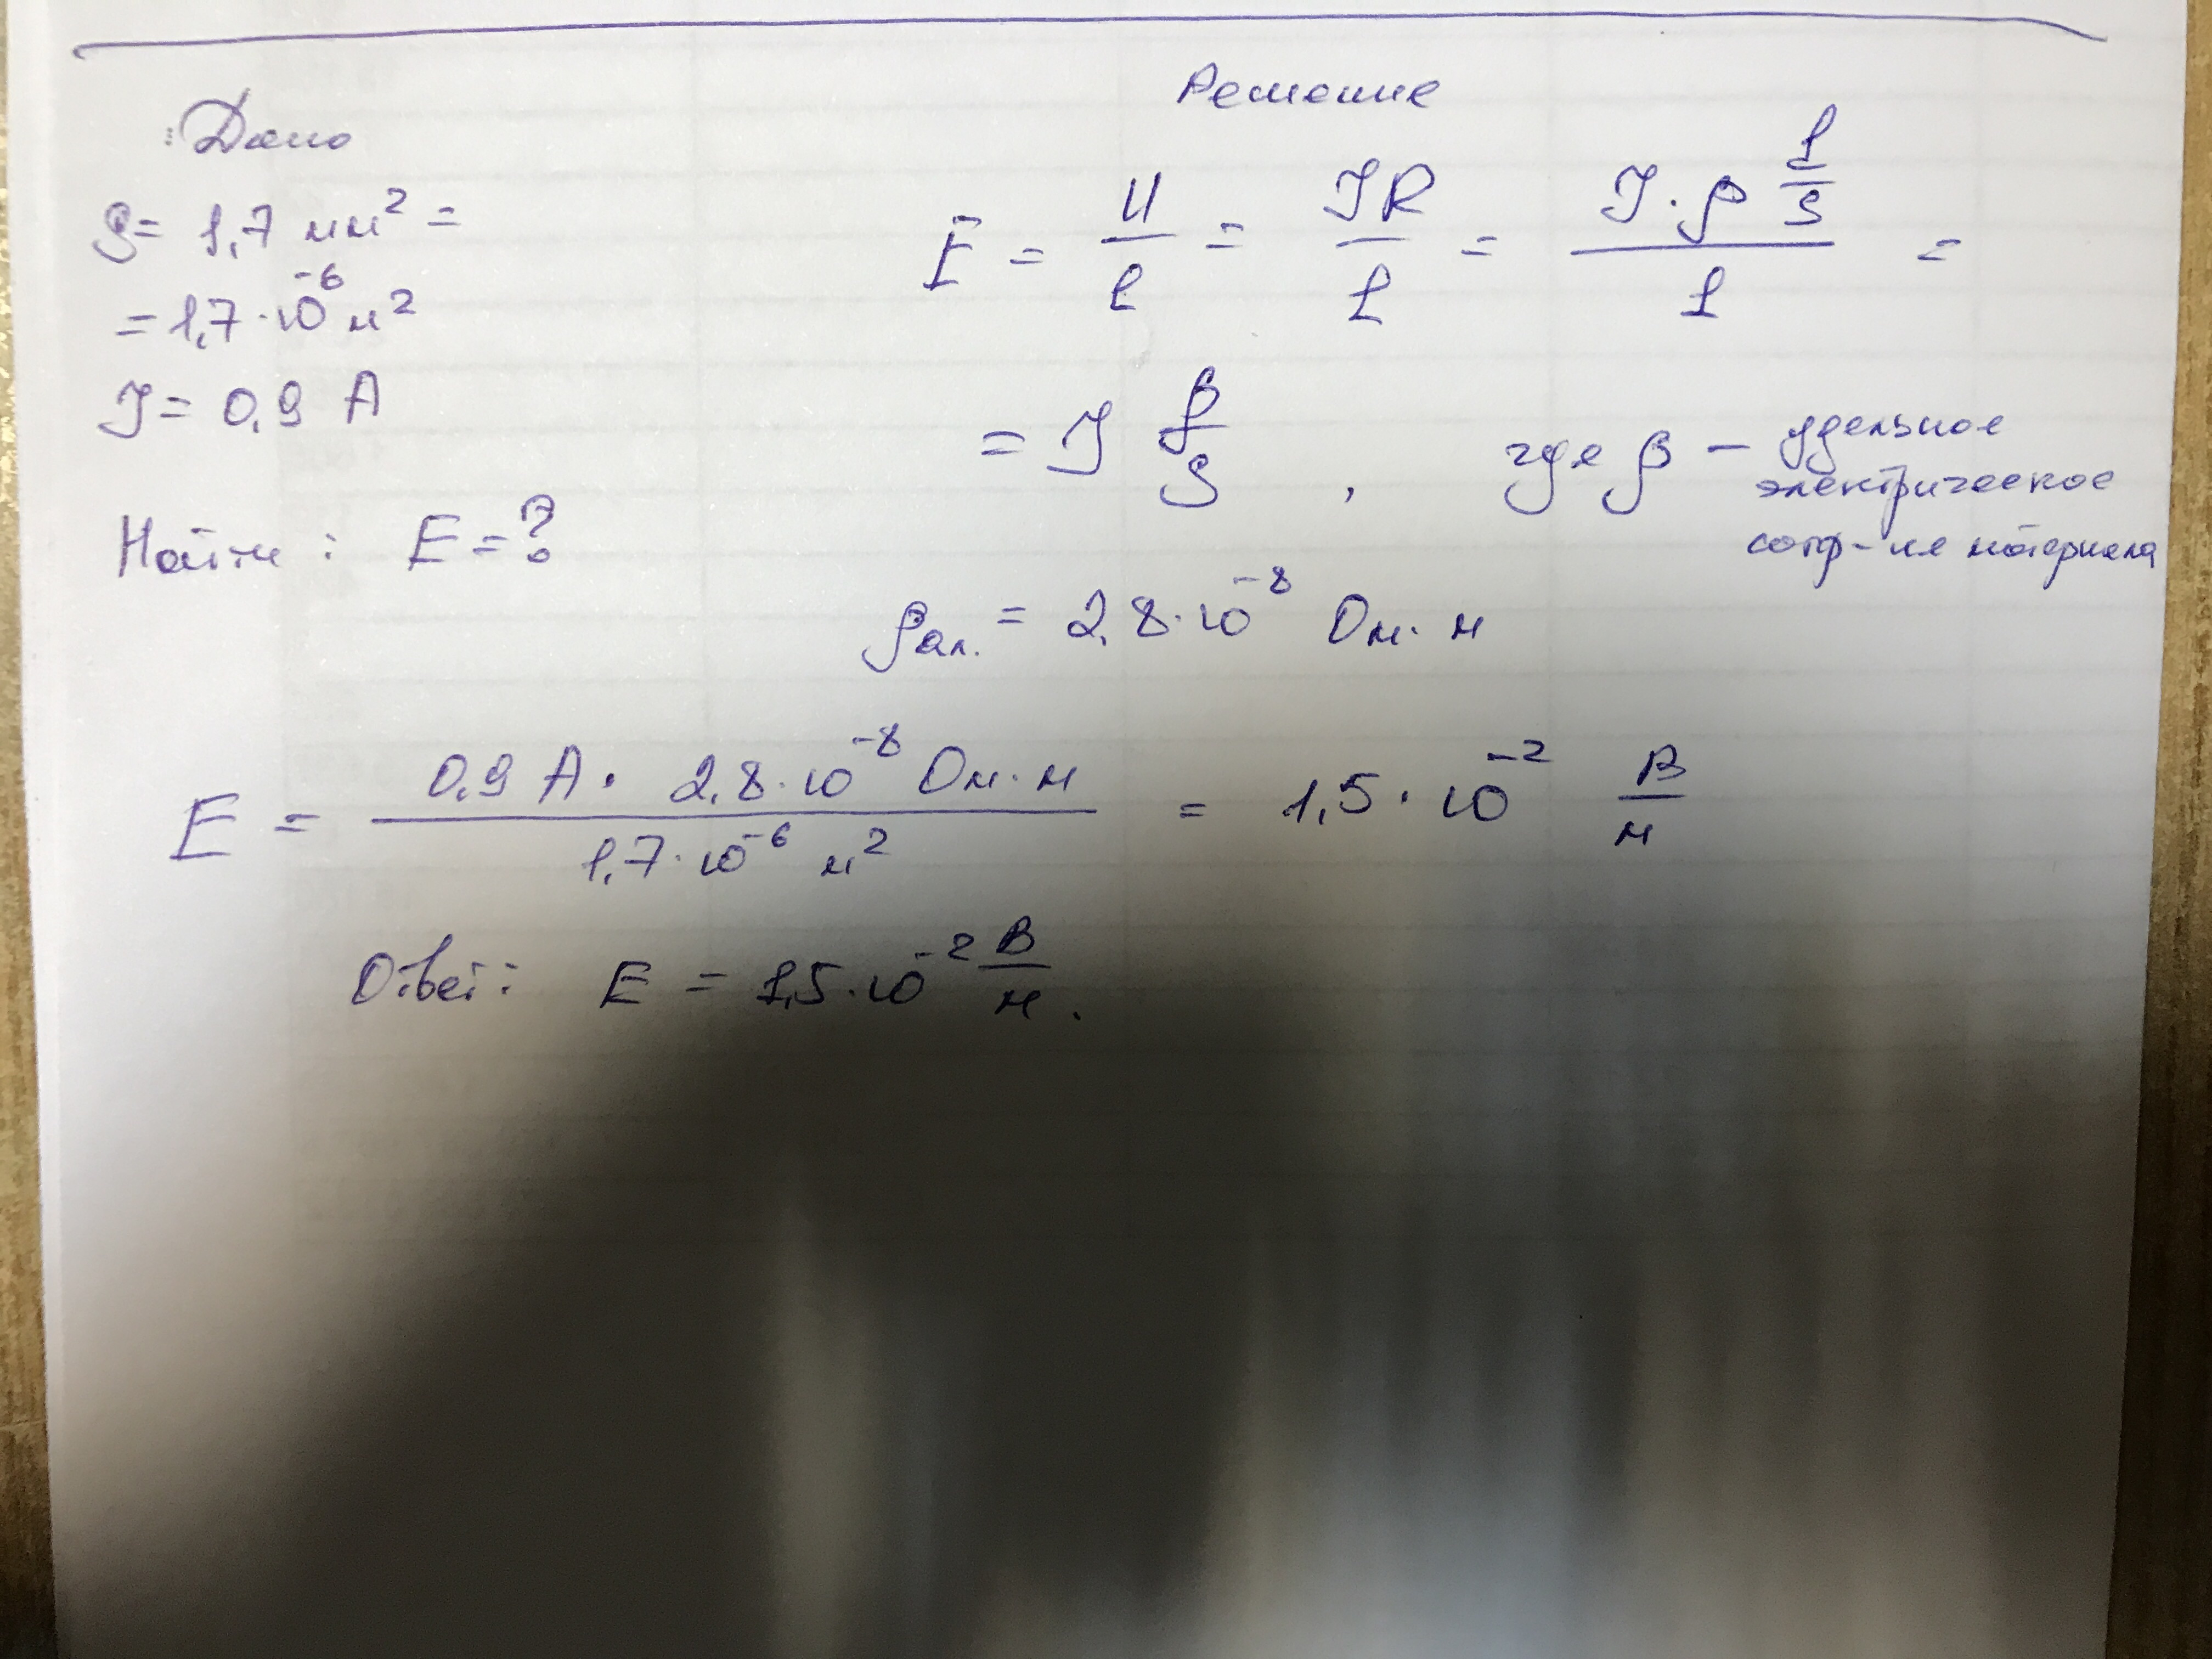 Дано
S = 1,7 мм² =
= 1,7·10⁻⁶ м²
J = 0,9 А
Найти : E = ?
Решение
E = U/l = JR/l = (J·ρ l/S)/l =
= J ρ/S , где ρ – удельное
электрическое
сопр-ие материала
ρал. = 2,8·10⁻⁸ Ом·м
E = (0,9 А · 2,8·10⁻⁸ Ом·м)/(1,7·10⁻⁶ м²) = 1,5·10⁻² В/м
Ответ: E = 1,5·10⁻² В/м.